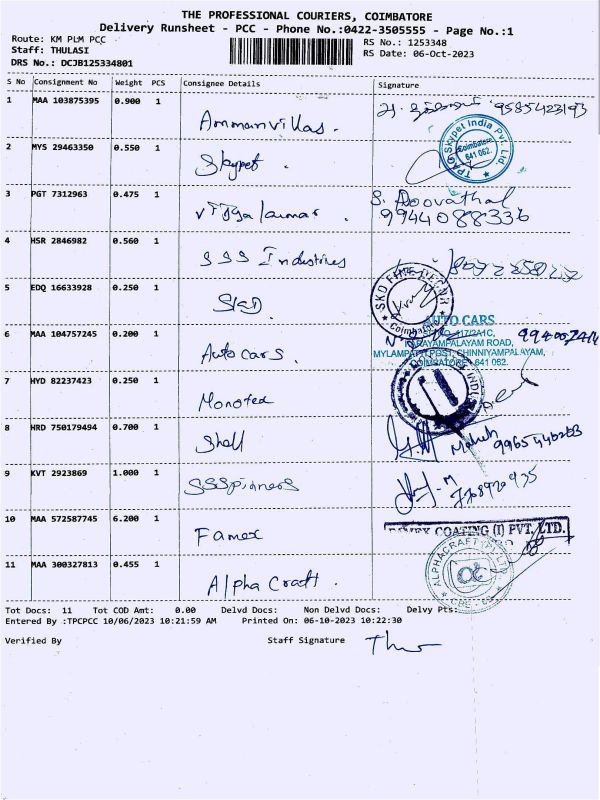 THE PROFESSIONAL COURIERS, COIMBATORE
Delivery Runsheet - PCC - Phone No.:0422-3505555 - Page No.:1
Route: KM PLM PCC
RS No.: 1253348
Staff: THULASI
RS Date: 06-Oct-2023
DRS No.: DCJB125334801
S No Consignment No Weight PCS Consignee Details Signature
1 MAA 103875395 0.900 1 Ammanvillas. 9585423193
2 MYS 29463350 0.550 1 Skypet. TPAG Skypet India Pvt. Ltd. Coimbatore 641 062.
3 PGT 7312963 0.475 1 vijyakumar. S. Poovathal
9944088336
4 HSR 2846982 0.560 1 SSS Industries
5 EDQ 16633928 0.250 1 SKD SKD FINE DECOR Coimbatore
6 MAA 104757245 0.200 1 Auto cars. AUTO CARS
417/2A1C,
NARAYAMPALAYAM ROAD,
MYLAMPATTI POST, CHINNIYAMPALAYAM,
COIMBATORE - 641 062.
7 HYD 82237423 0.250 1 Monotex
8 HRD 750179494 0.700 1 Shell Mahesh 9965446263
9 KVT 2923869 1.000 1 SSSpinners 7708920935
10 MAA 572587745 6.200 1 Famex COATING (I) PVT. LTD.
11 MAA 300327813 0.455 1 Alpha Craft. ALPHACRAFT (P) LTD. CBE - 62
Tot Docs: 11 Tot COD Amt: 0.00 Delvd Docs: Non Delvd Docs: Delvy Pts:
Entered By :TPCPCC 10/06/2023 10:21:59 AM Printed On: 06-10-2023 10:22:30
Verified By Staff Signature